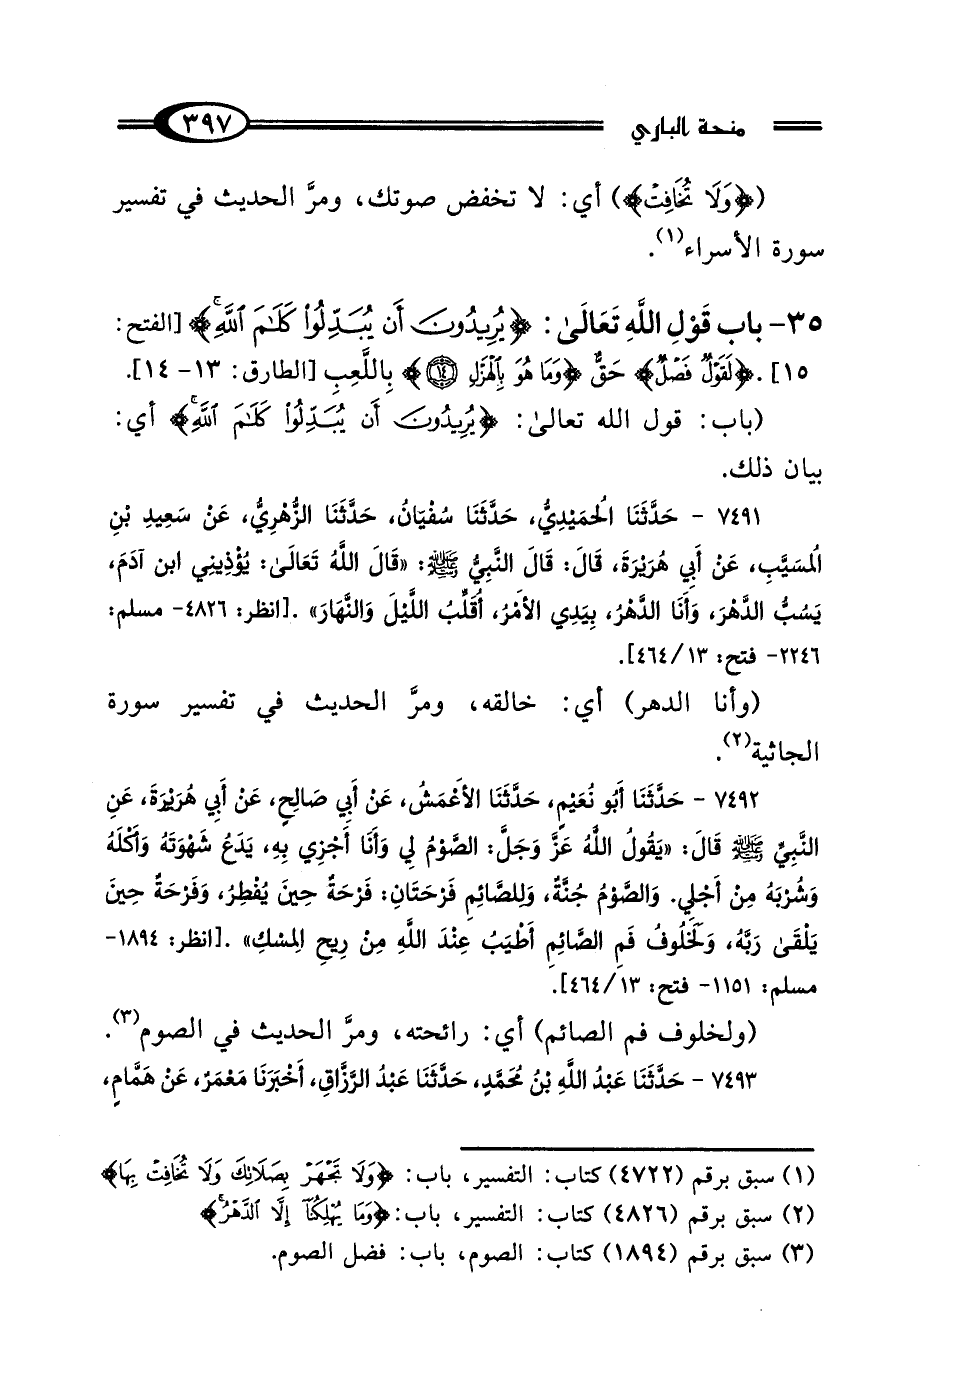 منحة الباري ٣٩٧
(﴿وَلَا تُخَافِتْ﴾) أي: لا تخفض صوتك، ومرَّ الحديث في تفسير
سورة الأسراء(١).
٣٥- باب قَوْلِ اللَّهِ تَعَالَىٰ: ﴿يُرِيدُونَ أَن يُبَدِّلُواْ كَلَٰمَ ٱللَّهِۚ﴾ [الفتح:
١٥]. ﴿لَقَوْلٌ فَصْلٌ﴾ حَقٌّ ﴿وَمَا هُوَ بِالْهَزْلِ ١٤﴾ بِاللَّعِبِ [الطارق: ١٣- ١٤].
(باب: قول الله تعالىٰ: ﴿يُرِيدُونَ أَن يُبَدِّلُواْ كَلَٰمَ ٱللَّهِۚ﴾ أي:
بيان ذلك.
٧٤٩١ - حَدَّثَنَا الحُمَيْدِيُّ، حَدَّثَنَا سُفْيَانُ، حَدَّثَنَا الزُّهْرِيُّ، عَنْ سَعِيدِ بْنِ
المُسَيَّبِ، عَنْ أَبِي هُرَيْرَةَ، قَالَ: قَالَ النَّبِيُّ ﷺ: «قَالَ اللَّهُ تَعَالَىٰ: يُؤْذِينِي ابن آدَمَ،
يَسُبُّ الدَّهْرَ، وَأَنَا الدَّهْرُ، بِيَدِي الأَمْرُ، أُقَلِّبُ اللَّيْلَ وَالنَّهَارَ». [انظر: ٤٨٢٦- مسلم:
٢٢٤٦- فتح: ١٣/ ٤٦٤].
(وأنا الدهر) أي: خالقه، ومرَّ الحديث في تفسير سورة
الجاثية(٢).
٧٤٩٢ - حَدَّثَنَا أَبُو نُعَيْمٍ، حَدَّثَنَا الأَعْمَشُ، عَنْ أَبِي صَالِحٍ، عَنْ أَبِي هُرَيْرَةَ، عَنِ
النَّبِيِّ ﷺ قَالَ: «يَقُولُ اللَّهُ عَزَّ وَجَلَّ: الصَّوْمُ لِي وَأَنَا أَجْزِي بِهِ، يَدَعُ شَهْوَتَهُ وَأَكْلَهُ
وَشُرْبَهُ مِنْ أَجْلِي. وَالصَّوْمُ جُنَّةٌ، وَلِلصَّائِمِ فَرْحَتَانِ: فَرْحَةٌ حِينَ يُفْطِرُ، وَفَرْحَةٌ حِينَ
يَلْقَىٰ رَبَّهُ، وَلَخُلُوفُ فَمِ الصَّائِمِ أَطْيَبُ عِنْدَ اللَّهِ مِنْ رِيحِ المِسْكِ». [انظر: ١٨٩٤-
مسلم: ١١٥١- فتح: ١٣/ ٤٦٤].
(ولخلوف فم الصائم) أي: رائحته، ومرَّ الحديث في الصوم(٣).
٧٤٩٣ - حَدَّثَنَا عَبْدُ اللَّهِ بْنُ مُحَمَّدٍ، حَدَّثَنَا عَبْدُ الرَّزَّاقِ، أَخْبَرَنَا مَعْمَرٌ، عَنْ هَمَّامٍ،
(١) سبق برقم (٤٧٢٢) كتاب: التفسير، باب: ﴿وَلَا تَجْهَرْ بِصَلَاتِكَ وَلَا تُخَافِتْ بِهَا﴾
(٢) سبق برقم (٤٨٢٦) كتاب: التفسير، باب: ﴿وَمَا يُهْلِكُنَآ إِلَّا ٱلدَّهْرُۚ﴾
(٣) سبق برقم (١٨٩٤) كتاب: الصوم، باب: فضل الصوم.